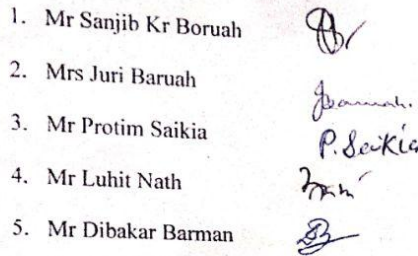 1. Mr Sanjib Kr Boruah
2. Mrs Juri Baruah
3. Mr Protim Saikia P. Saikia
4. Mr Luhit Nath
5. Mr Dibakar Barman